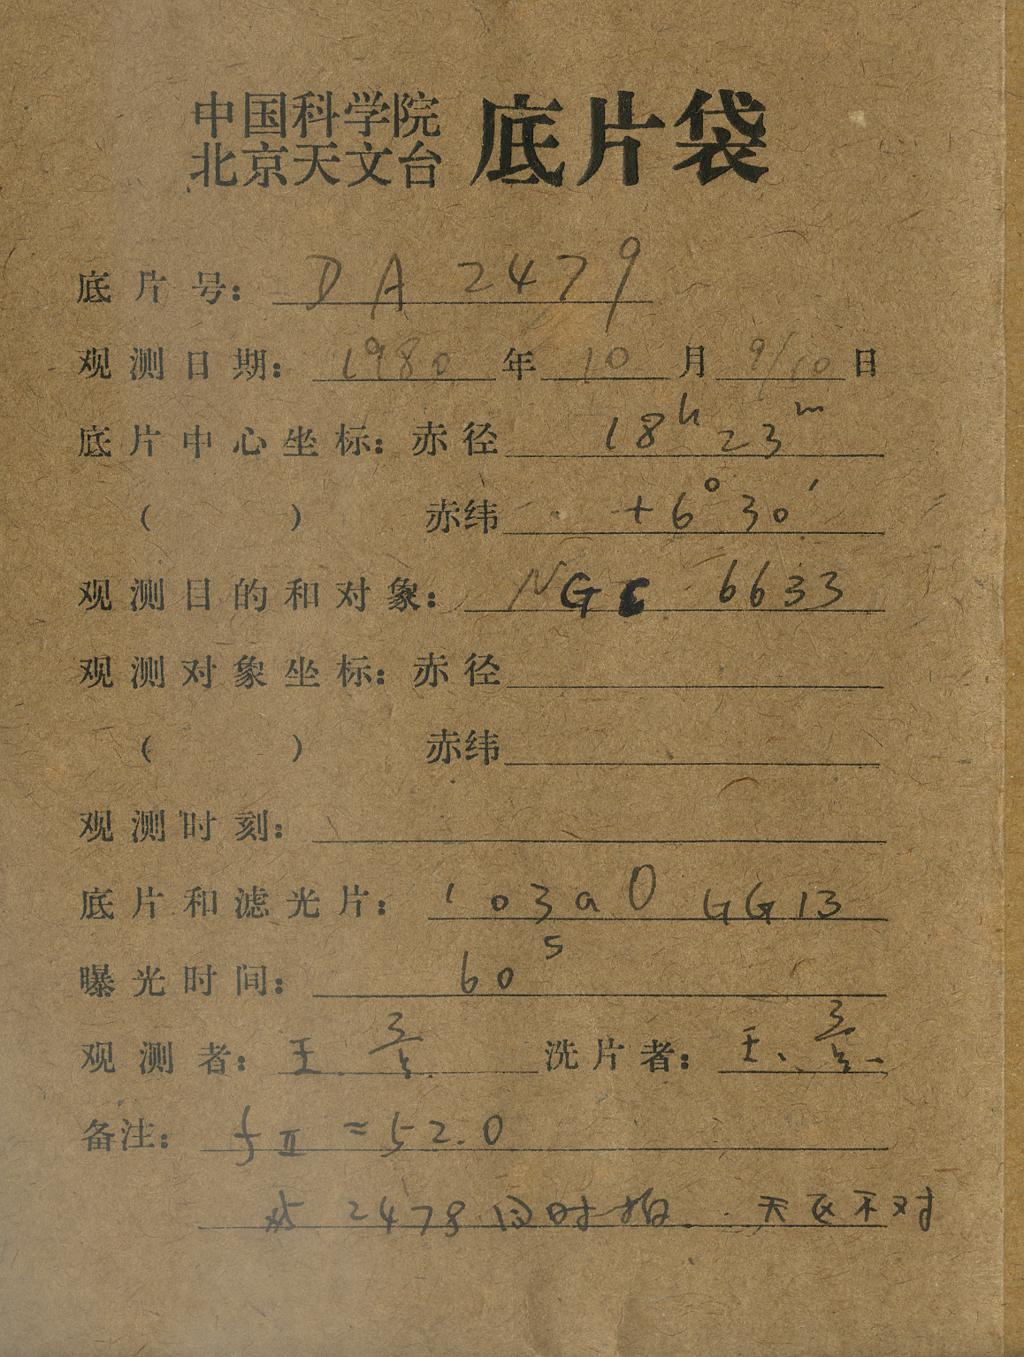 中国科学院
北京天文台 底片袋
底片号: DA 2479
观测日期: 1980 年 10 月 9/10 日
底片中心坐标: 赤径 18h 23m
( ) 赤纬 +6° 30′
观测目的和对象: NGC 6633
观测对象坐标: 赤径
( ) 赤纬
观测时刻:
底片和滤光片: 103aO GG13
曝光时间: 60s
观测者: 王. 洗片者: 王、
备注: fII ≈ 52.0
2478同时拍. 天区不对